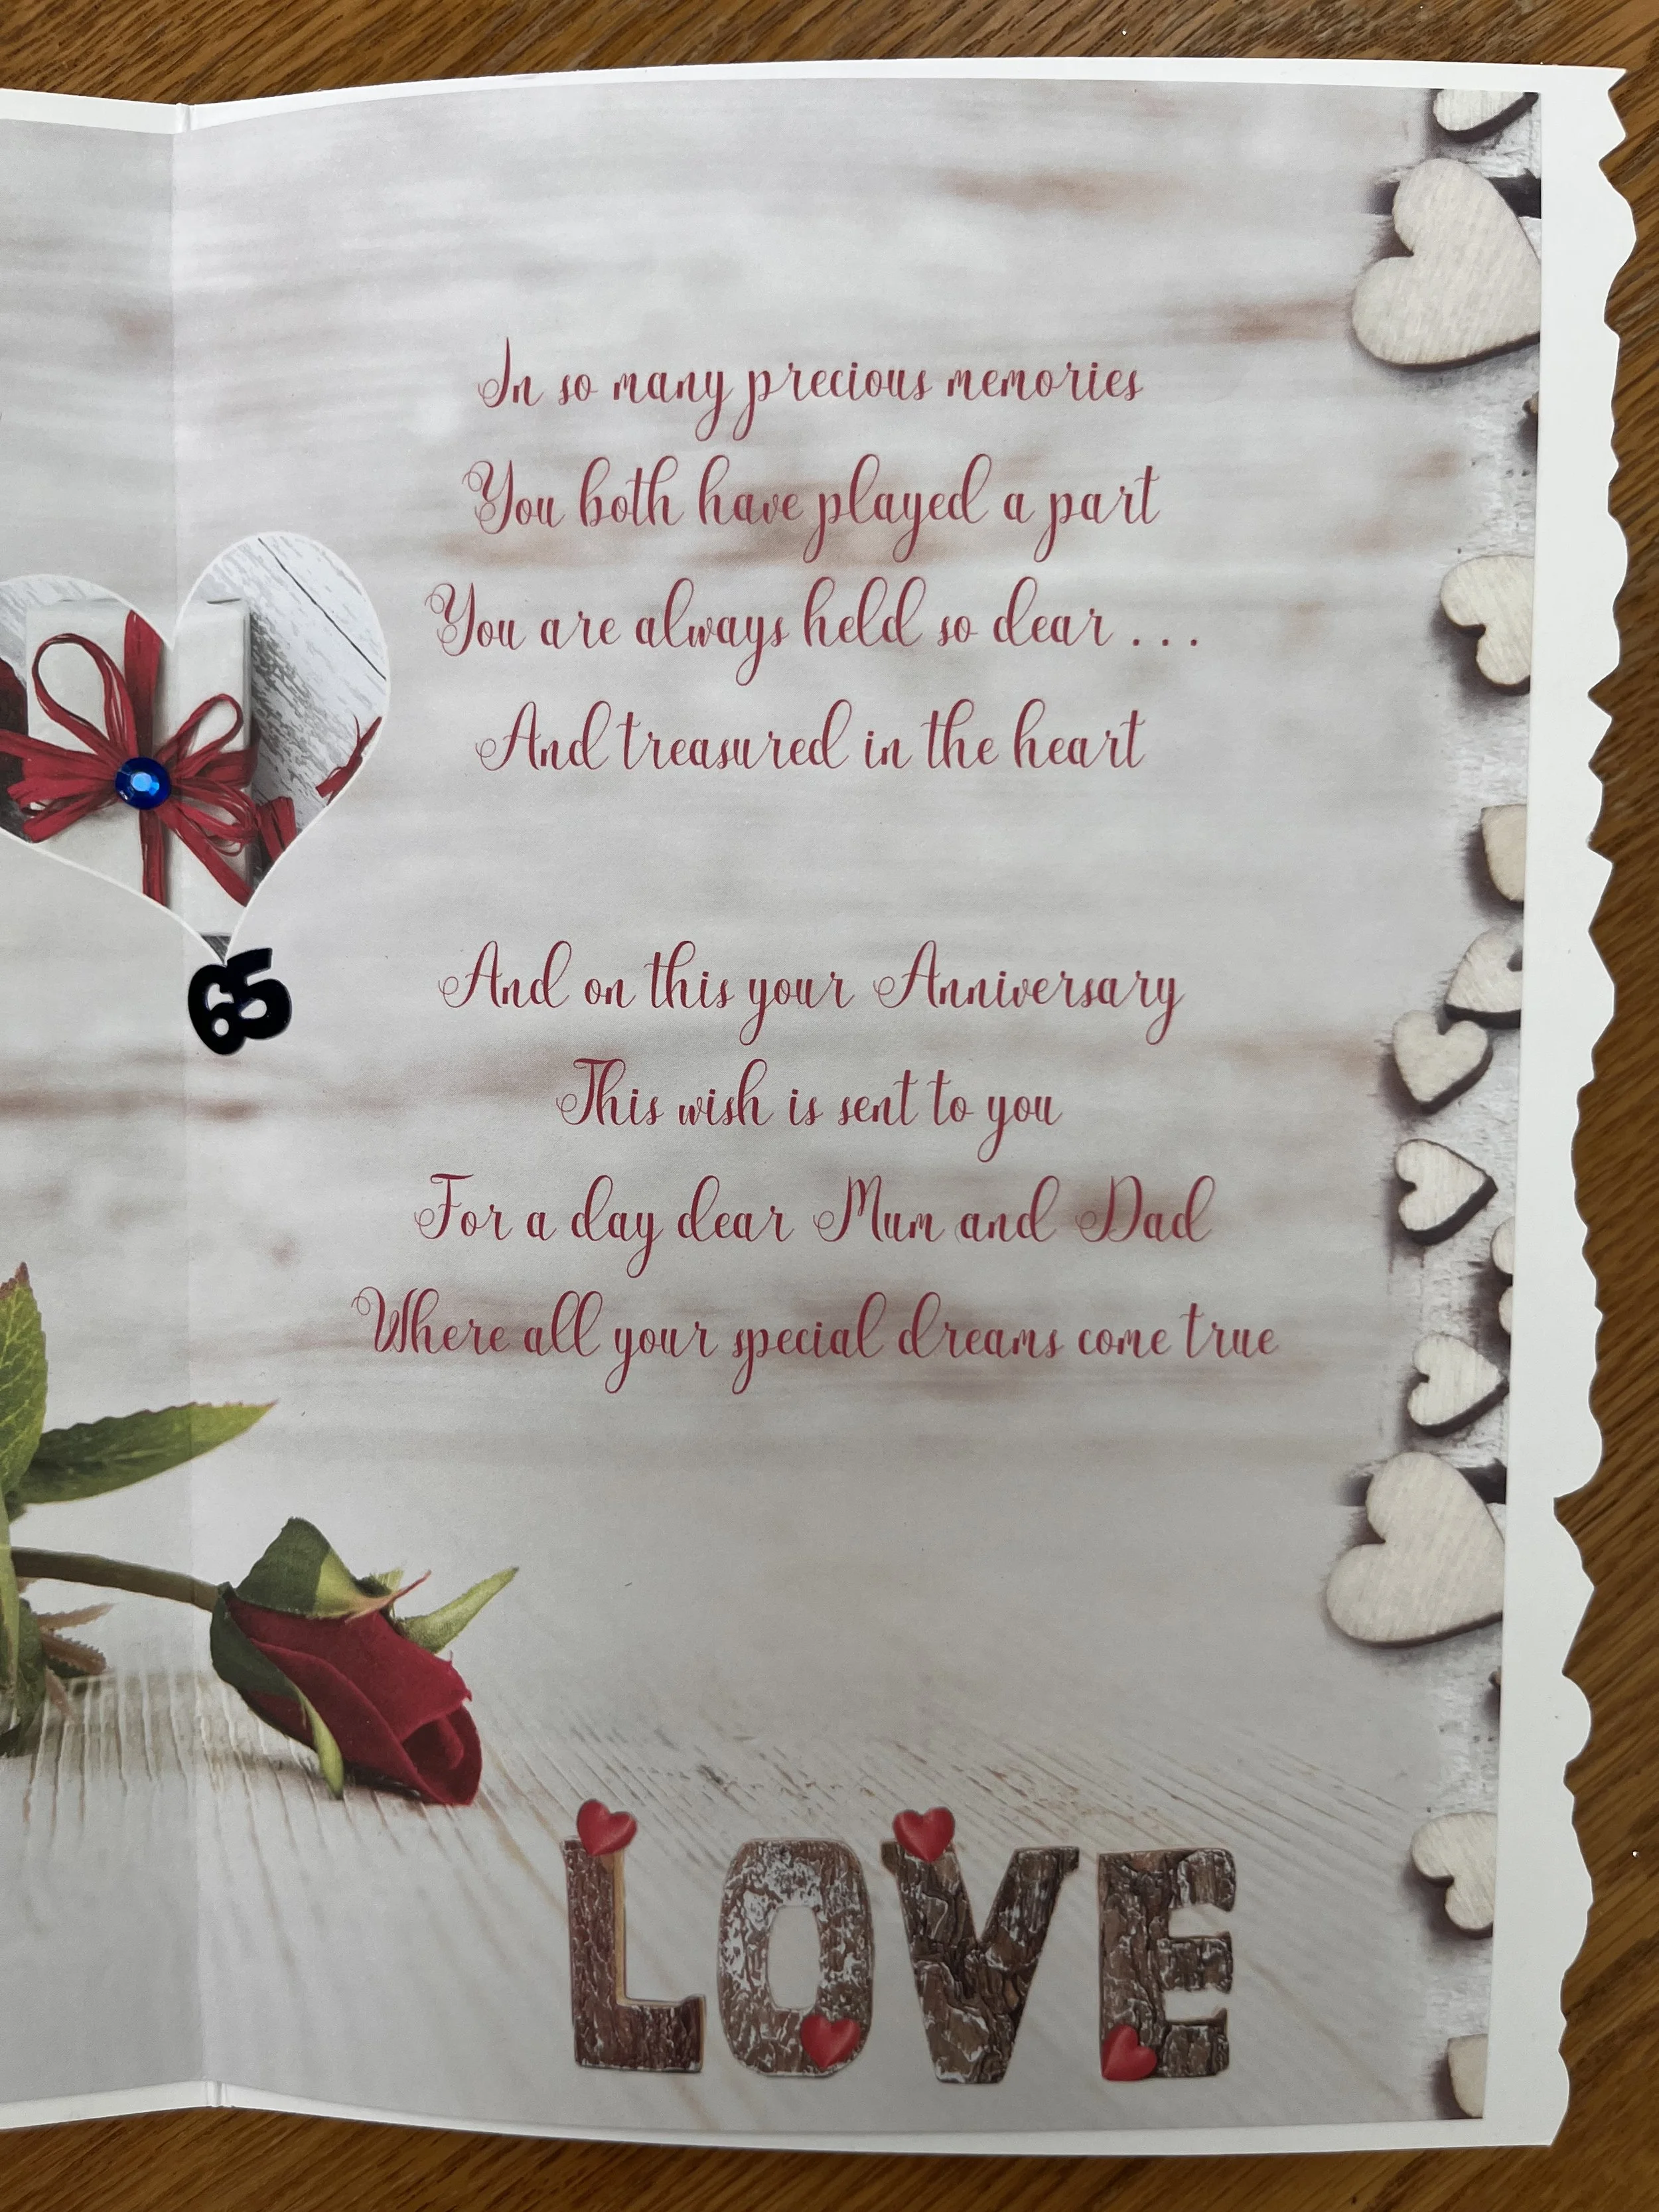 In so many precious memories
You both have played a part
You are always held so dear . . .
And treasured in the heart
65
And on this your Anniversary
This wish is sent to you
For a day dear Mum and Dad
Where all your special dreams come true
LOVE